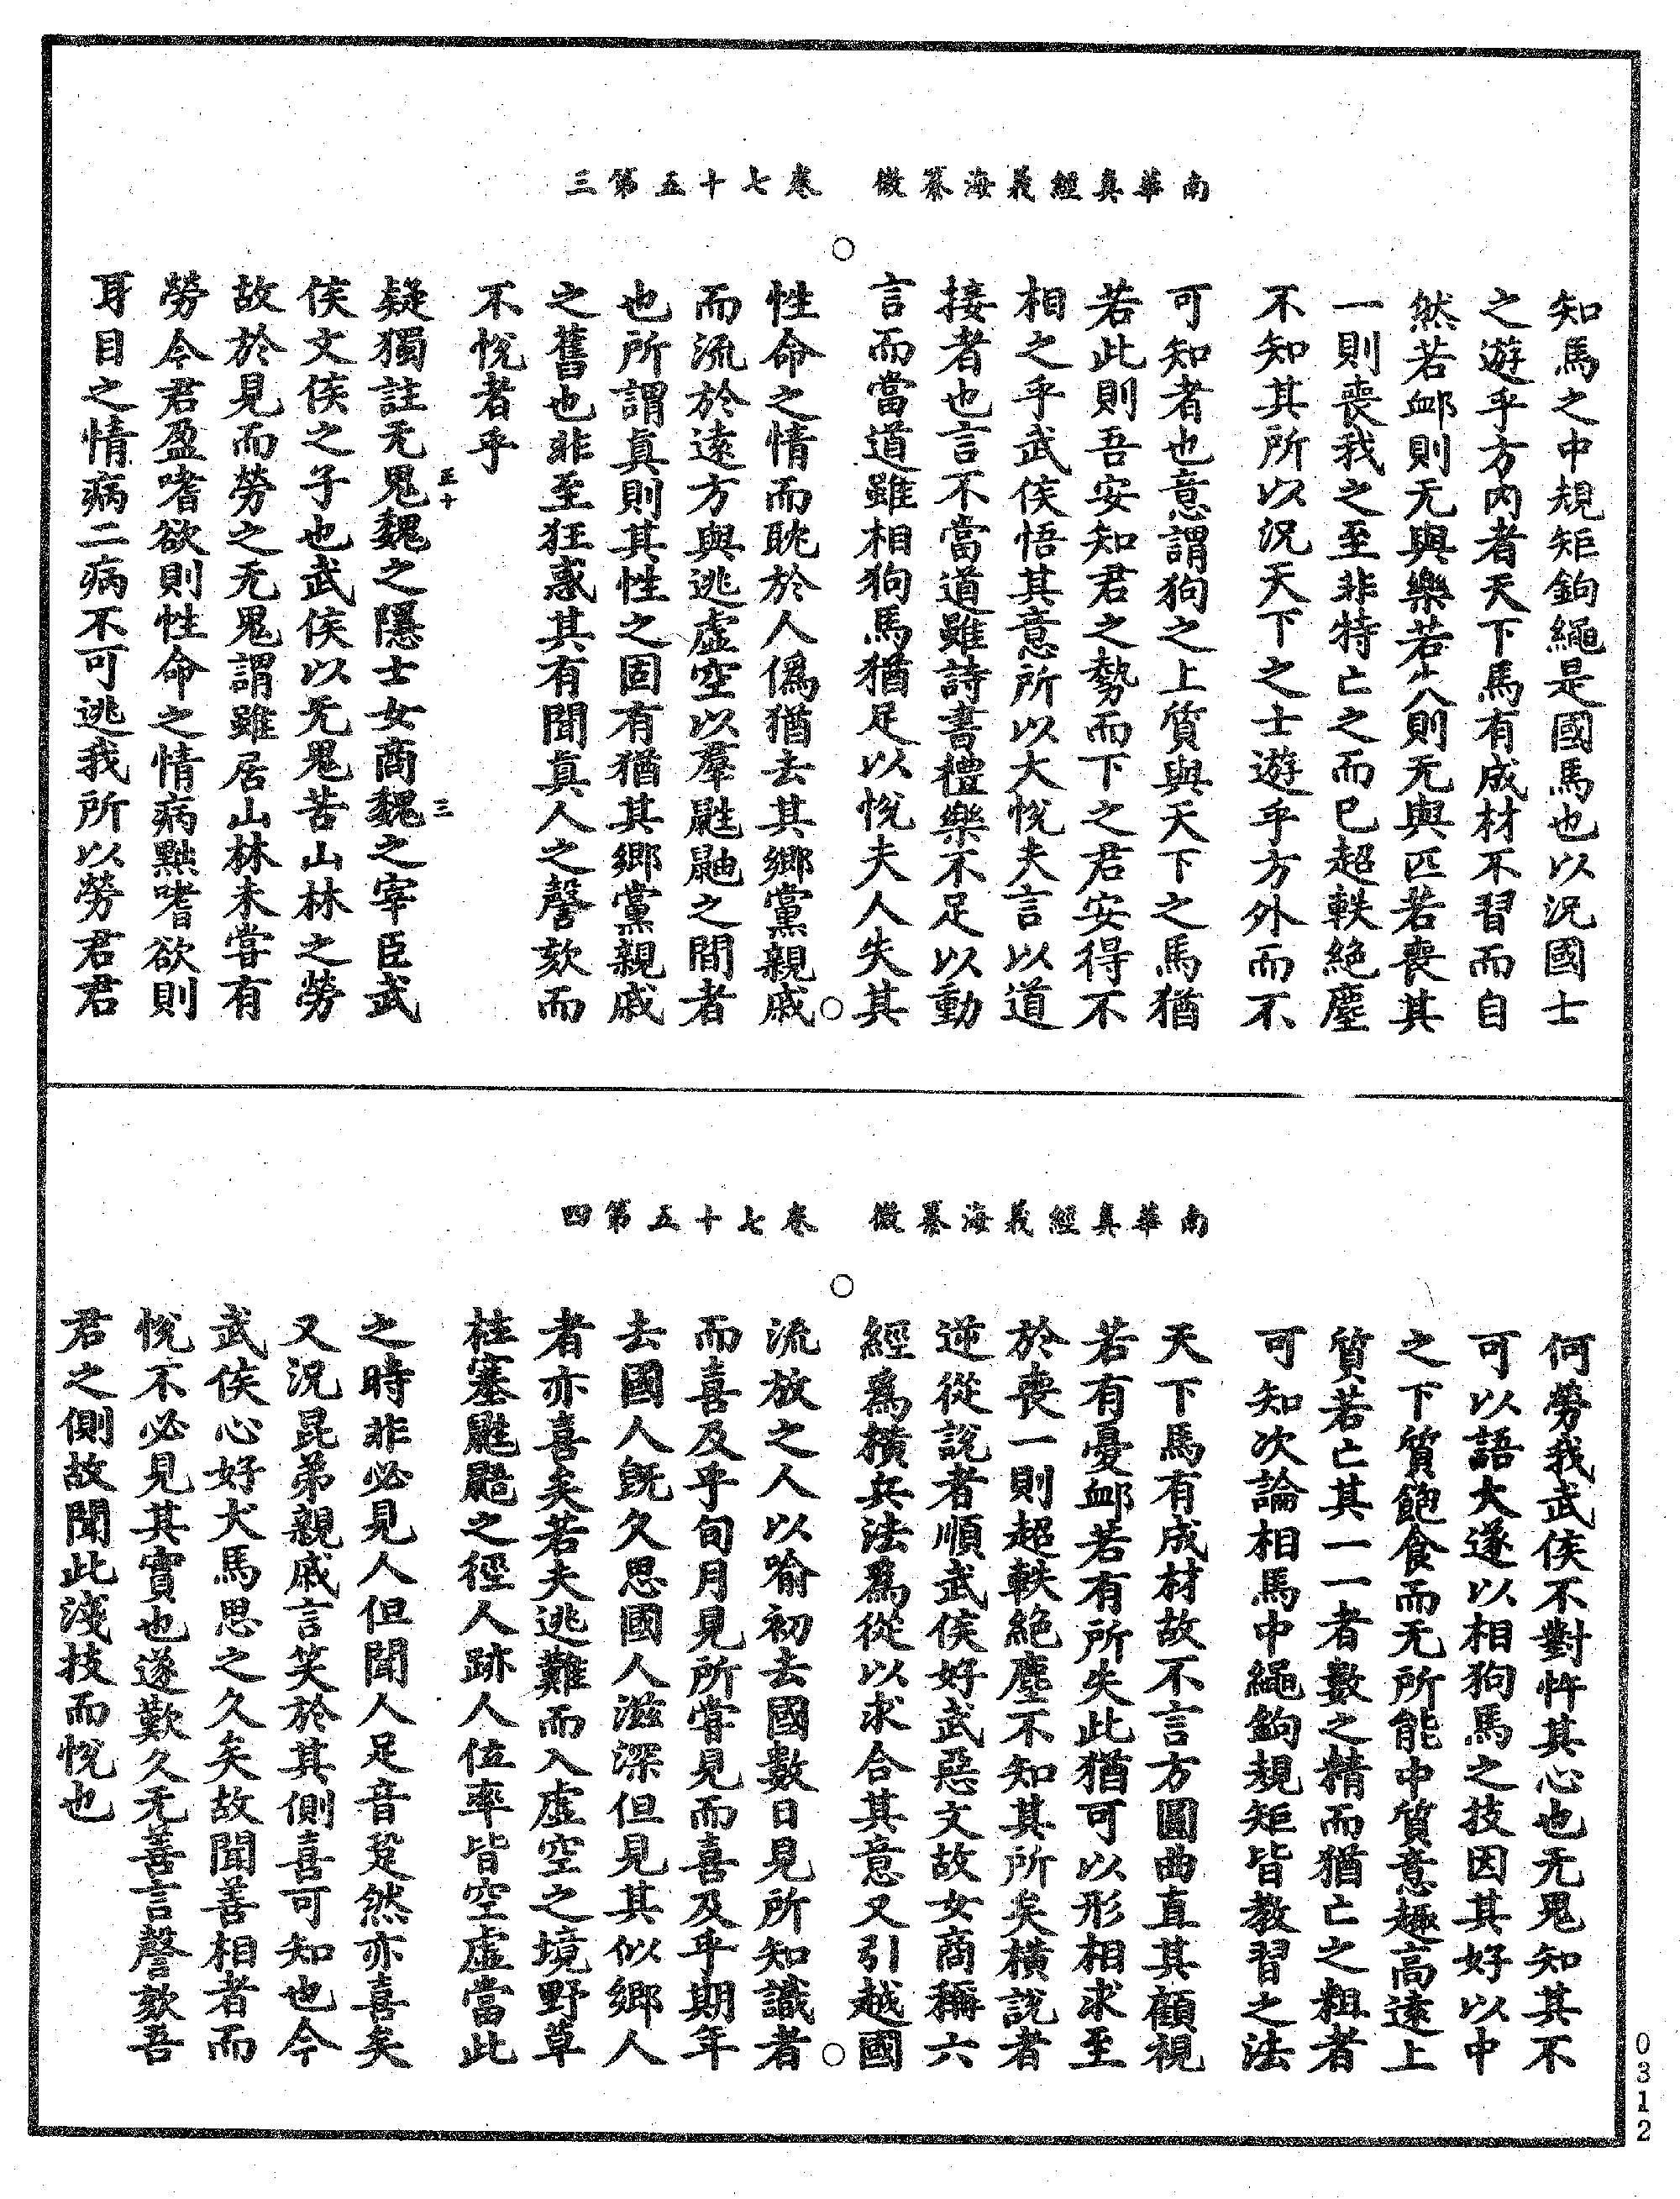 南華真經義海纂微　卷七十五第三
知馬之中規矩鉤繩是國馬也以況國士
之遊乎方內者天下馬有成材不習而自
然若䘏則无與樂若失則无與匹若喪其
一則喪我之至非特亡之而已超軼絕塵
不知其所以況天下之士遊乎方外而不
可知者也意謂狗之上質與天下之馬猶
若此則吾安知君之勢而下之君安得不
相之乎武侯悟其意所以大悅夫言以道
接者也言不當道雖詩書禮樂不足以動
言而當道雖相狗馬猶足以悅夫人失其
性命之情而耽於人僞猶去其鄉黨親戚
而流於遠方與逃虛空以羣鼪鼬之間者
也所謂真則其性之固有猶其鄉黨親戚
之舊也非至狂惑其有聞真人之謦欬而
不悅者乎
疑獨註无鬼魏之隱士女商魏之宰臣武
侯文侯之子也武侯以无鬼苦山林之勞
故於見而勞之无鬼謂雖居山林未嘗有
勞今君盈嗜欲則性命之情病黜嗜欲則
耳目之情病二病不可逃我所以勞君君
五十
三
南華真經義海纂微　卷七十五第四
何勞我武侯不對忤其心也无鬼知其不
可以語大遂以相狗馬之技因其好以中
之下質飽食而无所能中質意趣高遠上
質若亡其一一者數之精而猶亡之粗者
可知次論相馬中繩鉤規矩皆教習之法
天下馬有成材故不言方圓曲直其顧視
若有憂䘏若有所失此猶可以形相求至
於喪一則超軼絕塵不知其所矣橫說者
逆從說者順武侯好武惡文故女商稱六
經為橫兵法為從以求合其意又引越國
流放之人以喻初去國數日見所知識者
而喜及乎旬月見所嘗見而喜及乎期年
去國人旣久思國人滋深但見其似鄉人
者亦喜矣若夫逃難而入虛空之境野草
柱塞鼪鼬之徑人跡人位率皆空虛當此
之時非必見人但聞人足音跫然亦喜矣
又況昆弟親戚言笑於其側喜可知也今
武侯心好犬馬思之久矣故聞善相者而
悅不必見其實也遂歎久无善言謦欬吾
君之側故聞此淺技而悅也
0312